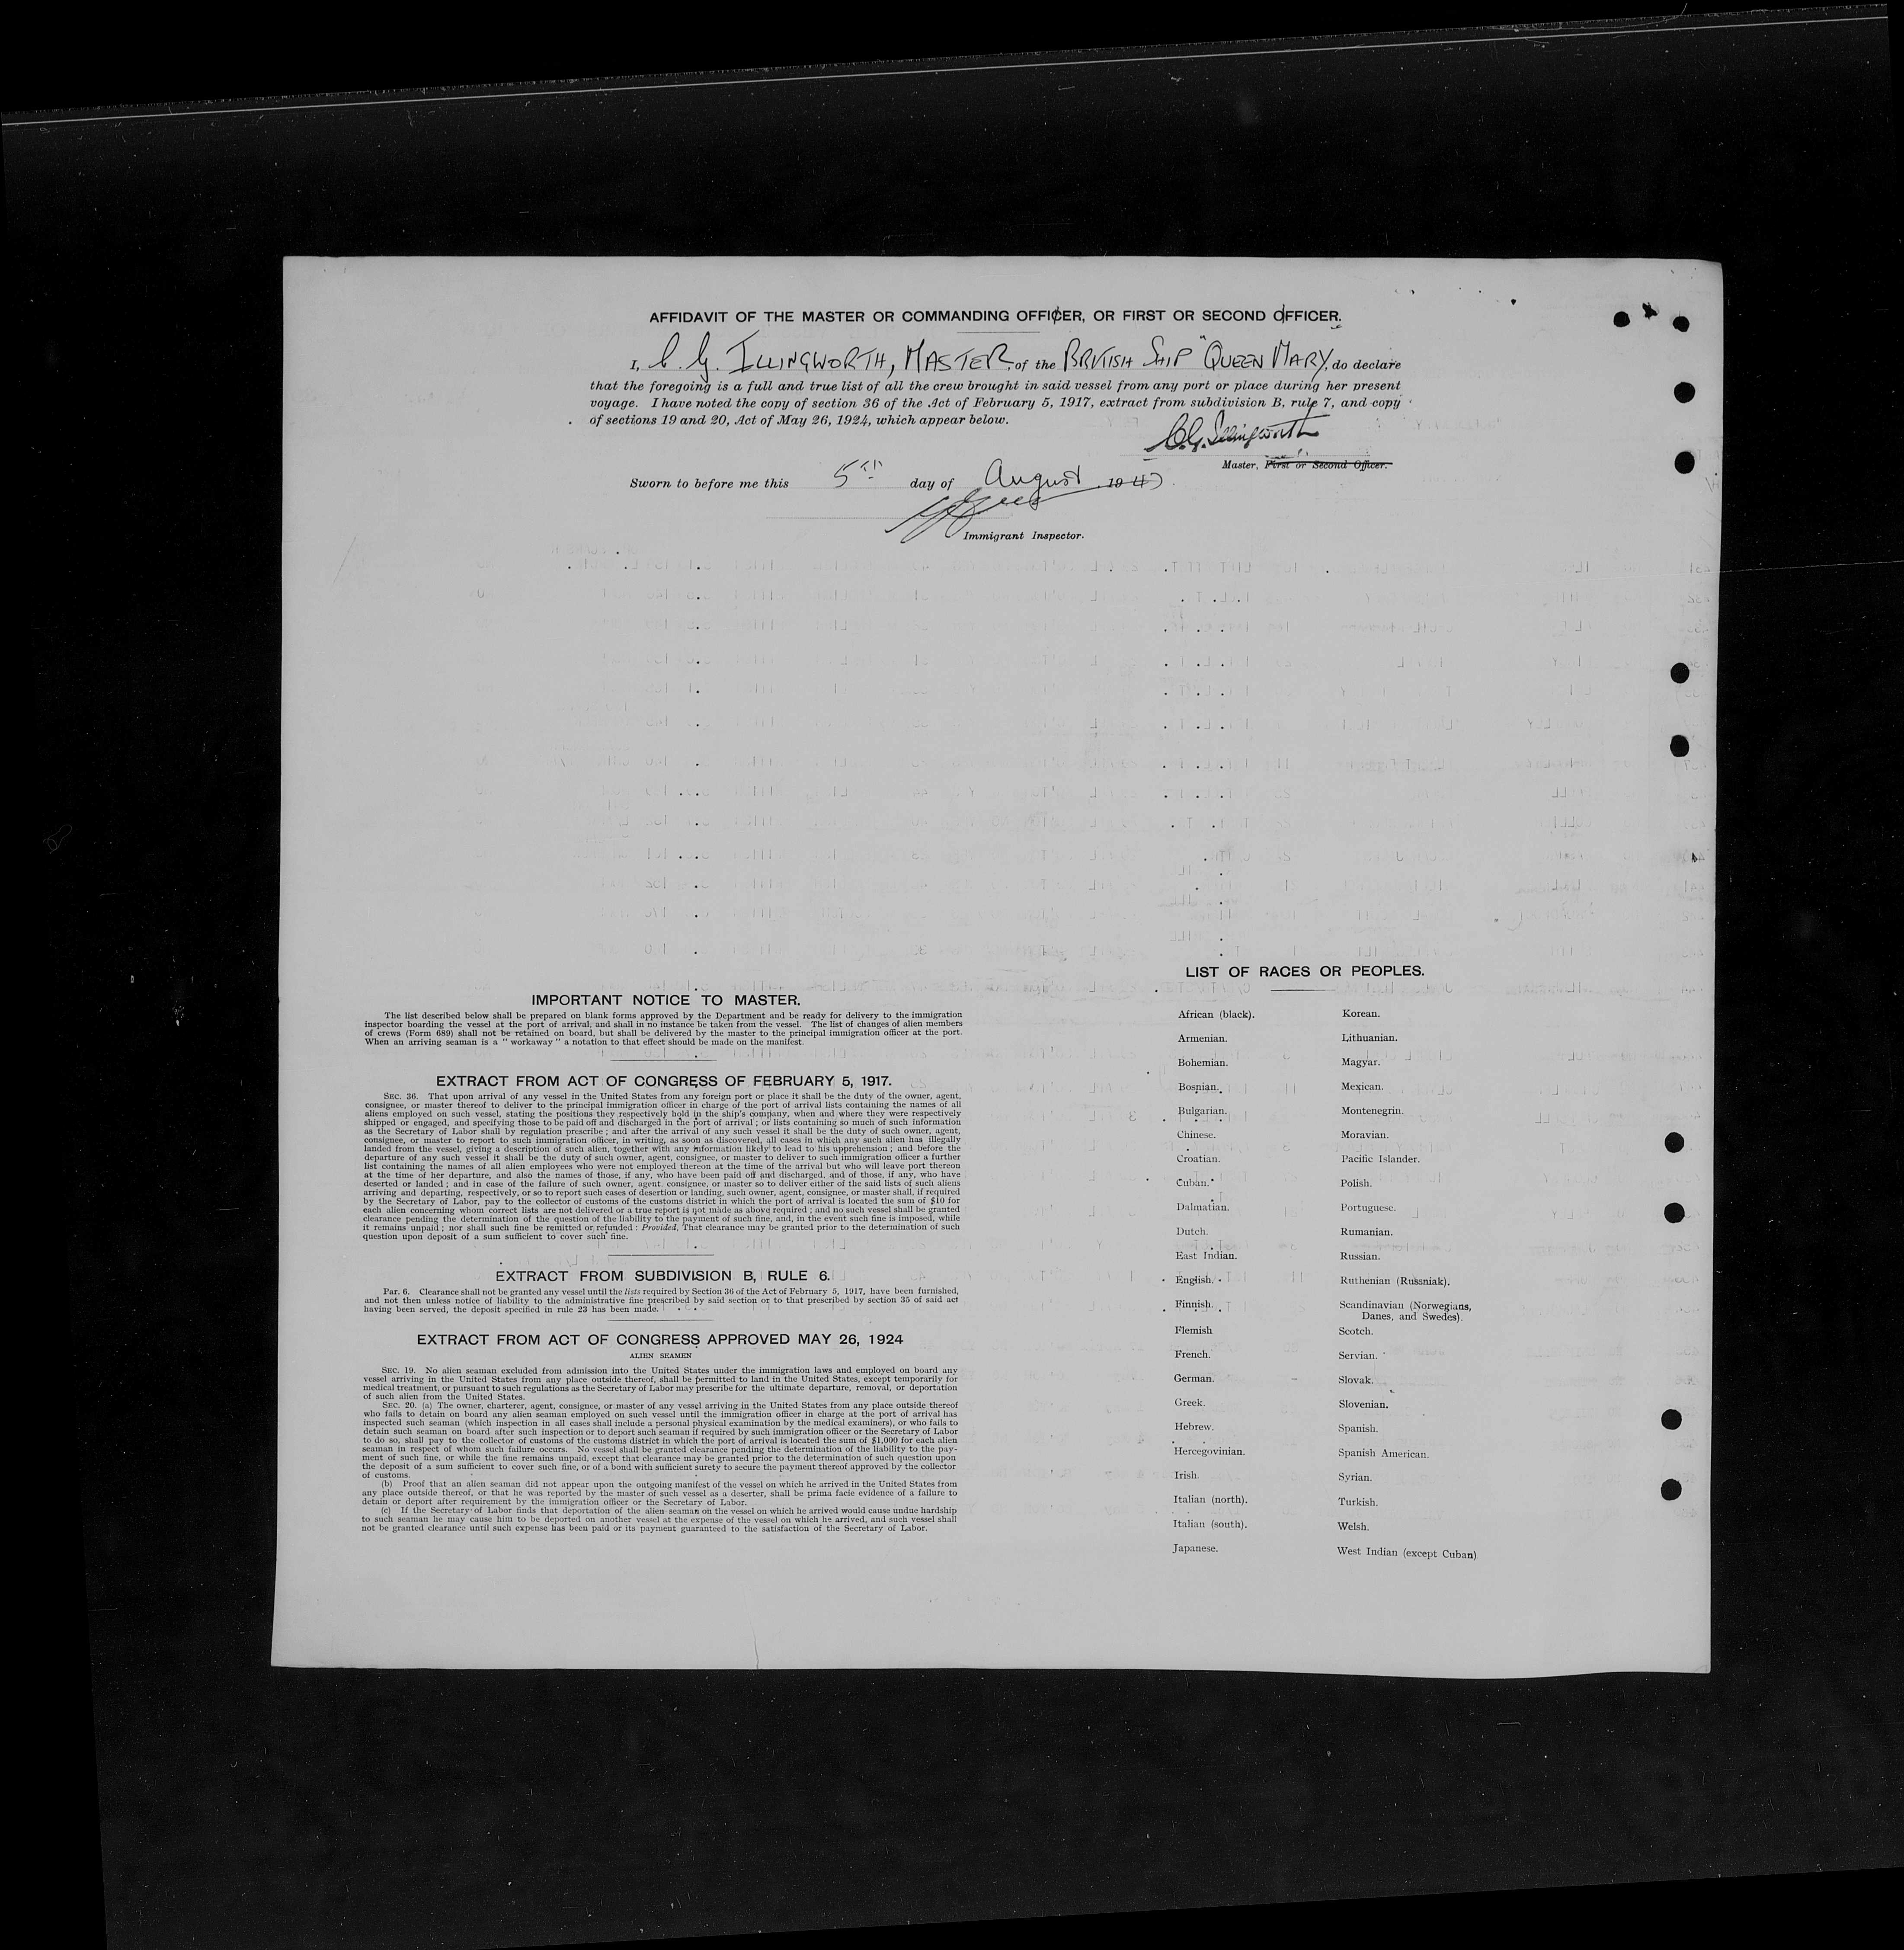 AFFIDAVIT OF THE MASTER OR COMMANDING OFFICER, OR FIRST OR SECOND OFFICER.
I, C. G. ILLINGWORTH, MASTER, of the BRITISH SHIP "QUEEN MARY, do declare
that the foregoing is a full and true list of all the crew brought in said vessel from any port or place during her present
voyage. I have noted the copy of section 36 of the Act of February 5, 1917, extract from subdivision B, rule 7, and copy
of sections 19 and 20, Act of May 26, 1924, which appear below.
C.G. Illingworth
Master, First or Second Officer.
Sworn to before me this 5TH day of August 1947
Immigrant Inspector.
IMPORTANT NOTICE TO MASTER.
The list described below shall be prepared on blank forms approved by the Department and be ready for delivery to the immigration
inspector boarding the vessel at the port of arrival, and shall in no instance be taken from the vessel. The list of changes of alien members
of crews (Form 689) shall not be retained on board, but shall be delivered by the master to the principal immigration officer at the port.
When an arriving seaman is a " workaway " a notation to that effect should be made on the manifest.
EXTRACT FROM ACT OF CONGRESS OF FEBRUARY 5, 1917.
SEC. 36. That upon arrival of any vessel in the United States from any foreign port or place it shall be the duty of the owner, agent,
consignee, or master thereof to deliver to the principal immigration officer in charge of the port of arrival lists containing the names of all
aliens employed on such vessel, stating the positions they respectively hold in the ship's company, when and where they were respectively
shipped or engaged, and specifying those to be paid off and discharged in the port of arrival ; or lists containing so much of such information
as the Secretary of Labor shall by regulation prescribe ; and after the arrival of any such vessel it shall be the duty of such owner, agent,
consignee, or master to report to such immigration officer, in writing, as soon as discovered, all cases in which any such alien has illegally
landed from the vessel, giving a description of such alien, together with any information likely to lead to his apprehension ; and before the
departure of any such vessel it shall be the duty of such owner, agent, consignee, or master to deliver to such immigration officer a further
list containing the names of all alien employees who were not employed thereon at the time of the arrival but who will leave port thereon
at the time of her departure, and also the names of those, if any, who have been paid off and discharged, and of those, if any, who have
deserted or landed ; and in case of the failure of such owner, agent, consignee, or master so to deliver either of the said lists of such aliens
arriving and departing, respectively, or so to report such cases of desertion or landing, such owner, agent, consignee, or master shall, if required
by the Secretary of Labor, pay to the collector of customs of the customs district in which the port of arrival is located the sum of $10 for
each alien concerning whom correct lists are not delivered or a true report is not made as above required ; and no such vessel shall be granted
clearance pending the determination of the question of the liability to the payment of such fine, and, in the event such fine is imposed, while
it remains unpaid ; nor shall such fine be remitted or refunded : Provided, That clearance may be granted prior to the determination of such
question upon deposit of a sum sufficient to cover such fine.
EXTRACT FROM SUBDIVISION B, RULE 6.
Par. 6. Clearance shall not be granted any vessel until the lists required by Section 36 of the Act of February 5, 1917, have been furnished,
and not then unless notice of liability to the administrative fine prescribed by said section or to that prescribed by section 35 of said act
having been served, the deposit specified in rule 23 has been made.
EXTRACT FROM ACT OF CONGRESS APPROVED MAY 26, 1924
ALIEN SEAMEN
SEC. 19. No alien seaman excluded from admission into the United States under the immigration laws and employed on board any
vessel arriving in the United States from any place outside thereof, shall be permitted to land in the United States, except temporarily for
medical treatment, or pursuant to such regulations as the Secretary of Labor may prescribe for the ultimate departure, removal, or deportation
of such alien from the United States.
SEC. 20. (a) The owner, charterer, agent, consignee, or master of any vessel arriving in the United States from any place outside thereof
who fails to detain on board any alien seaman employed on such vessel until the immigration officer in charge at the port of arrival has
inspected such seaman (which inspection in all cases shall include a personal physical examination by the medical examiners), or who fails to
detain such seaman on board after such inspection or to deport such seaman if required by such immigration officer or the Secretary of Labor
to do so, shall pay to the collector of customs of the customs district in which the port of arrival is located the sum of $1,000 for each alien
seaman in respect of whom such failure occurs. No vessel shall be granted clearance pending the determination of the liability to the pay-
ment of such fine, or while the fine remains unpaid, except that clearance may be granted prior to the determination of such question upon
the deposit of a sum sufficient to cover such fine, or of a bond with sufficient surety to secure the payment thereof approved by the collector
of customs.
(b) Proof that an alien seaman did not appear upon the outgoing manifest of the vessel on which he arrived in the United States from
any place outside thereof, or that he was reported by the master of such vessel as a deserter, shall be prima facie evidence of a failure to
detain or deport after requirement by the immigration officer or the Secretary of Labor.
(c) If the Secretary of Labor finds that deportation of the alien seaman on the vessel on which he arrived would cause undue hardship
to such seaman he may cause him to be deported on another vessel at the expense of the vessel on which he arrived, and such vessel shall
not be granted clearance until such expense has been paid or its payment guaranteed to the satisfaction of the Secretary of Labor.
LIST OF RACES OR PEOPLES.
African (black).
Armenian.
Bohemian.
Bosnian.
Bulgarian.
Chinese.
Croatian.
Cuban.
Dalmatian.
Dutch.
East Indian.
English.
Finnish.
Flemish
French.
German.
Greek.
Hebrew.
Hercegovinian.
Irish.
Italian (north).
Italian (south).
Japanese.
Korean.
Lithuanian.
Magyar.
Mexican.
Montenegrin.
Moravian.
Pacific Islander.
Polish.
Portuguese.
Rumanian.
Russian.
Ruthenian (Russniak).
Scandinavian (Norwegians,
Danes, and Swedes).
Scotch.
Servian.
Slovak.
Slovenian.
Spanish.
Spanish American.
Syrian.
Turkish.
Welsh.
West Indian (except Cuban)